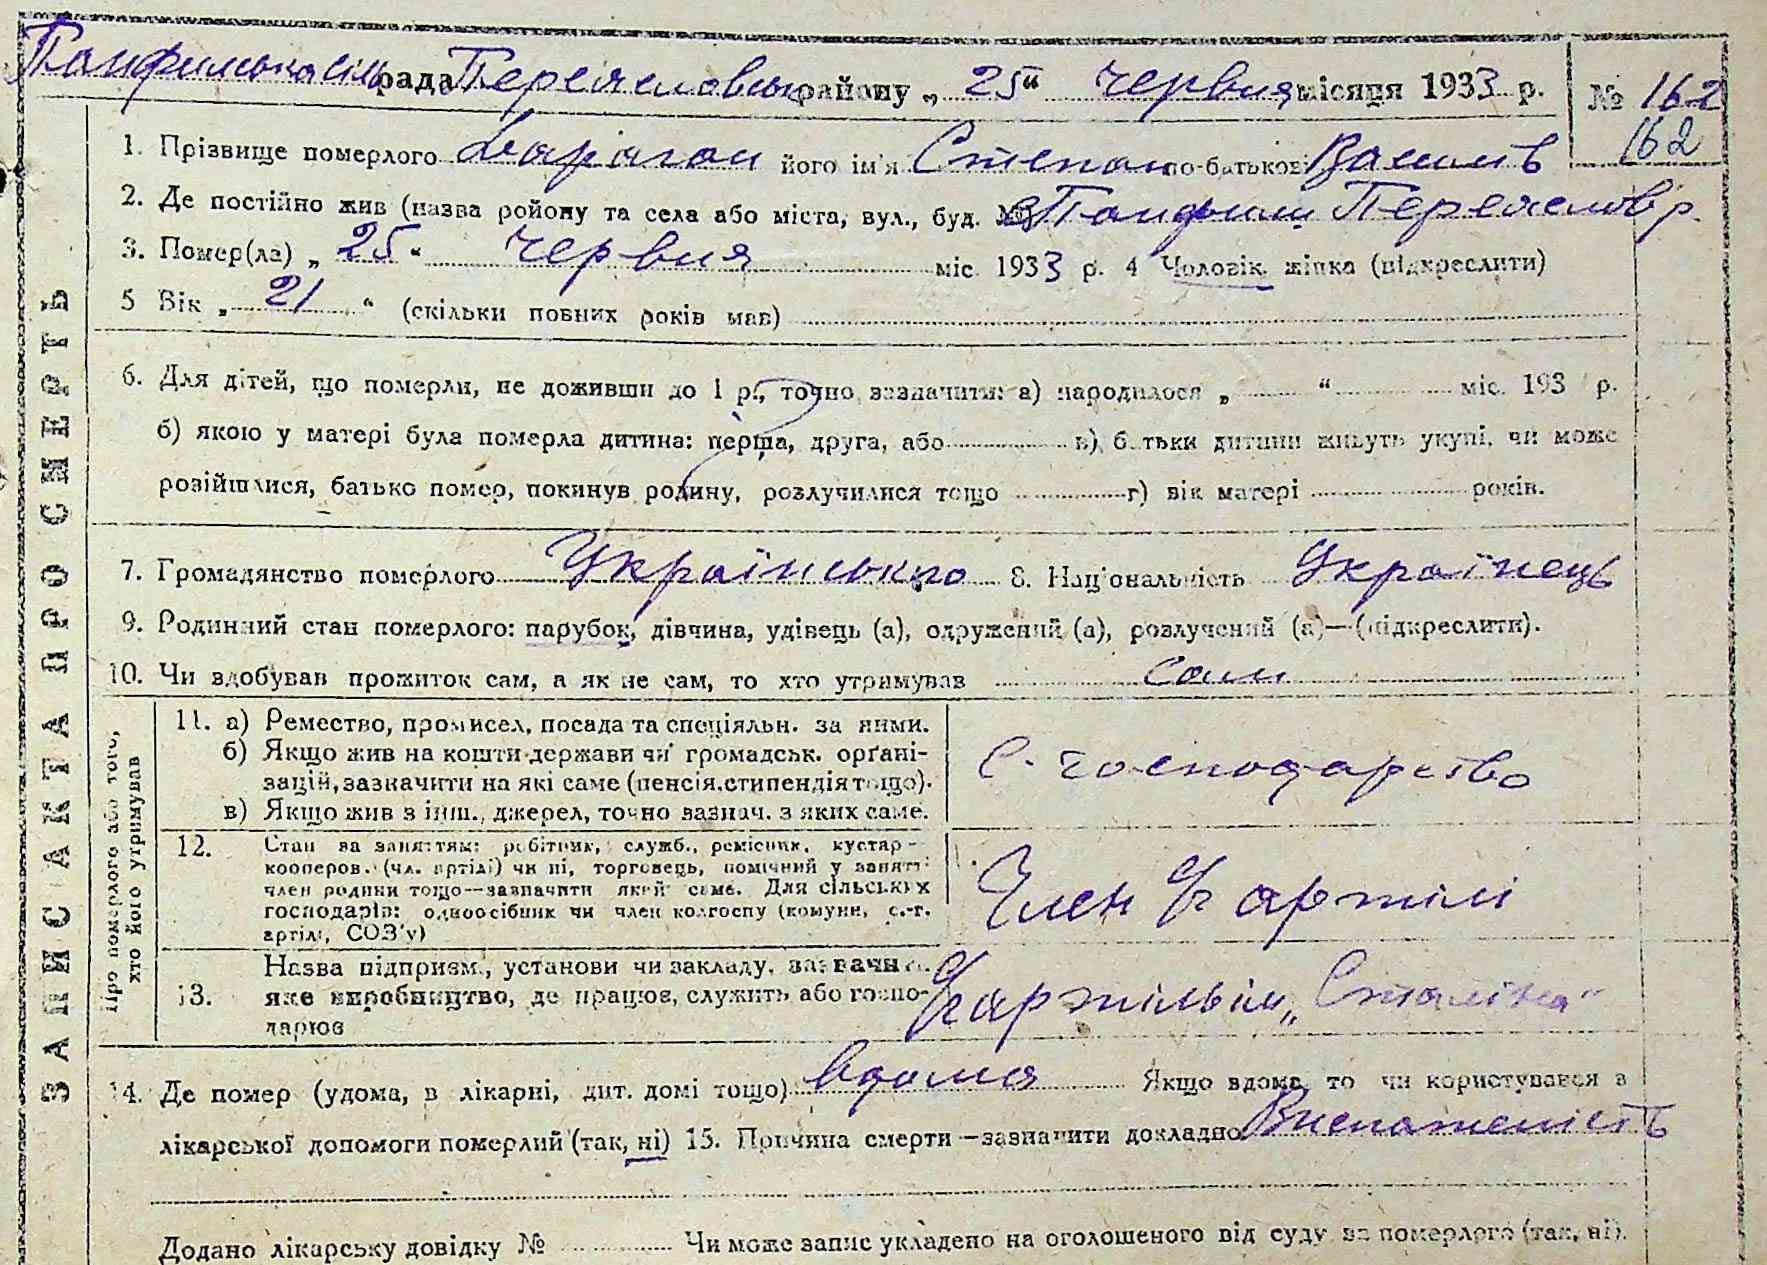 Панфильська сіль рада Переяславськ району „25“ червня місяця 1933 р. № 162
162
1. Прізвище померлого Дараган його ім'я Степан по-батькові Василів
2. Де постійно жив (назва ройону та села або міста, вул., буд. №) с Панфили Переяслов р.
3. Помер(ла) „25“ червня міс. 1933 р. 4 Чоловік, жінка (підкреслити)
5 Вік „21“ (скільки повних років мав)
6. Для дітей, що померли, не доживши до 1 р., точно зазначити: а) народилося „ “ міс. 193 р.
б) якою у матері була померла дитина: перша, друга, або в) батьки дитини живуть укупі, чи може
розійшлися, батько помер, покинув родину, розлучилися тощо г) вік матері років.
7. Громадянство померлого Українського 8. Національність Українець
9. Родинний стан померлого: парубок, дівчина, удівець (а), одружений (а), розлучений (а)—(підкреслити).
10. Чи здобував прожиток сам, а як не сам, то хто утримував сам
ЗАПИС АКТА ПРО СМЕРТЬ
Про померлого або того, хто його утримував
11. а) Ремество, промисел, посада та спеціяльн. за ними.
б) Якщо жив на кошти держави чи громадськ. орґані-
зацій, зазначити на які саме (пенсія, стипендія тощо).
в) Якщо жив з інш., джерел, точно зазнач. з яких саме.
С. господарство
12. Стан за заняттям: робітник, служб., ремісник, кустар-
кооперов. (чл. артілі) чи ні, торговець, помічний у занятті
член родини тощо—зазначити який саме. Для сільських
господарів: одноосібник чи член колгоспу (комуни, с.-г.
артілі, СОЗ'у)
Член артілі
13. Назва підприєм., установи чи закладу, зазначив.
яке виробництво, де працює, служить або госпо-
дарює
артіль ім „Сталіна“
14. Де помер (удома, в лікарні, дит. домі тощо) вдома Якщо вдома, то чи користувався з
лікарської допомоги померлий (так, ні) 15. Причина смерти—зазначити докладно Виснаженість
Додано лікарську довідку № Чи може запис укладено на оголошеного від суду за померлого (так, ні).